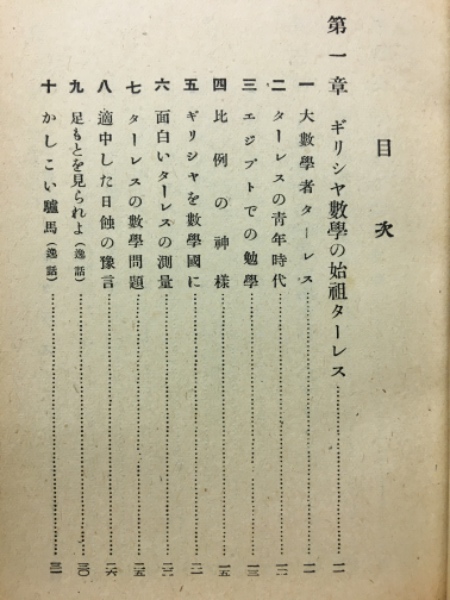 目次
第一章 ギリシヤ數學の始祖ターレス……一一
一 大數學者ターレス……一一
二 ターレスの靑年時代……一二
三 エジプトでの勉學……一三
四 比例の神樣……一五
五 ギリシヤを數學國に……二一
六 面白いターレスの測量……二二
七 ターレスの數學問題……二五
八 適中した日蝕の豫言……二六
九 足もとを見られよ(逸話)……三〇
十 かしこい驢馬(逸話)……三一